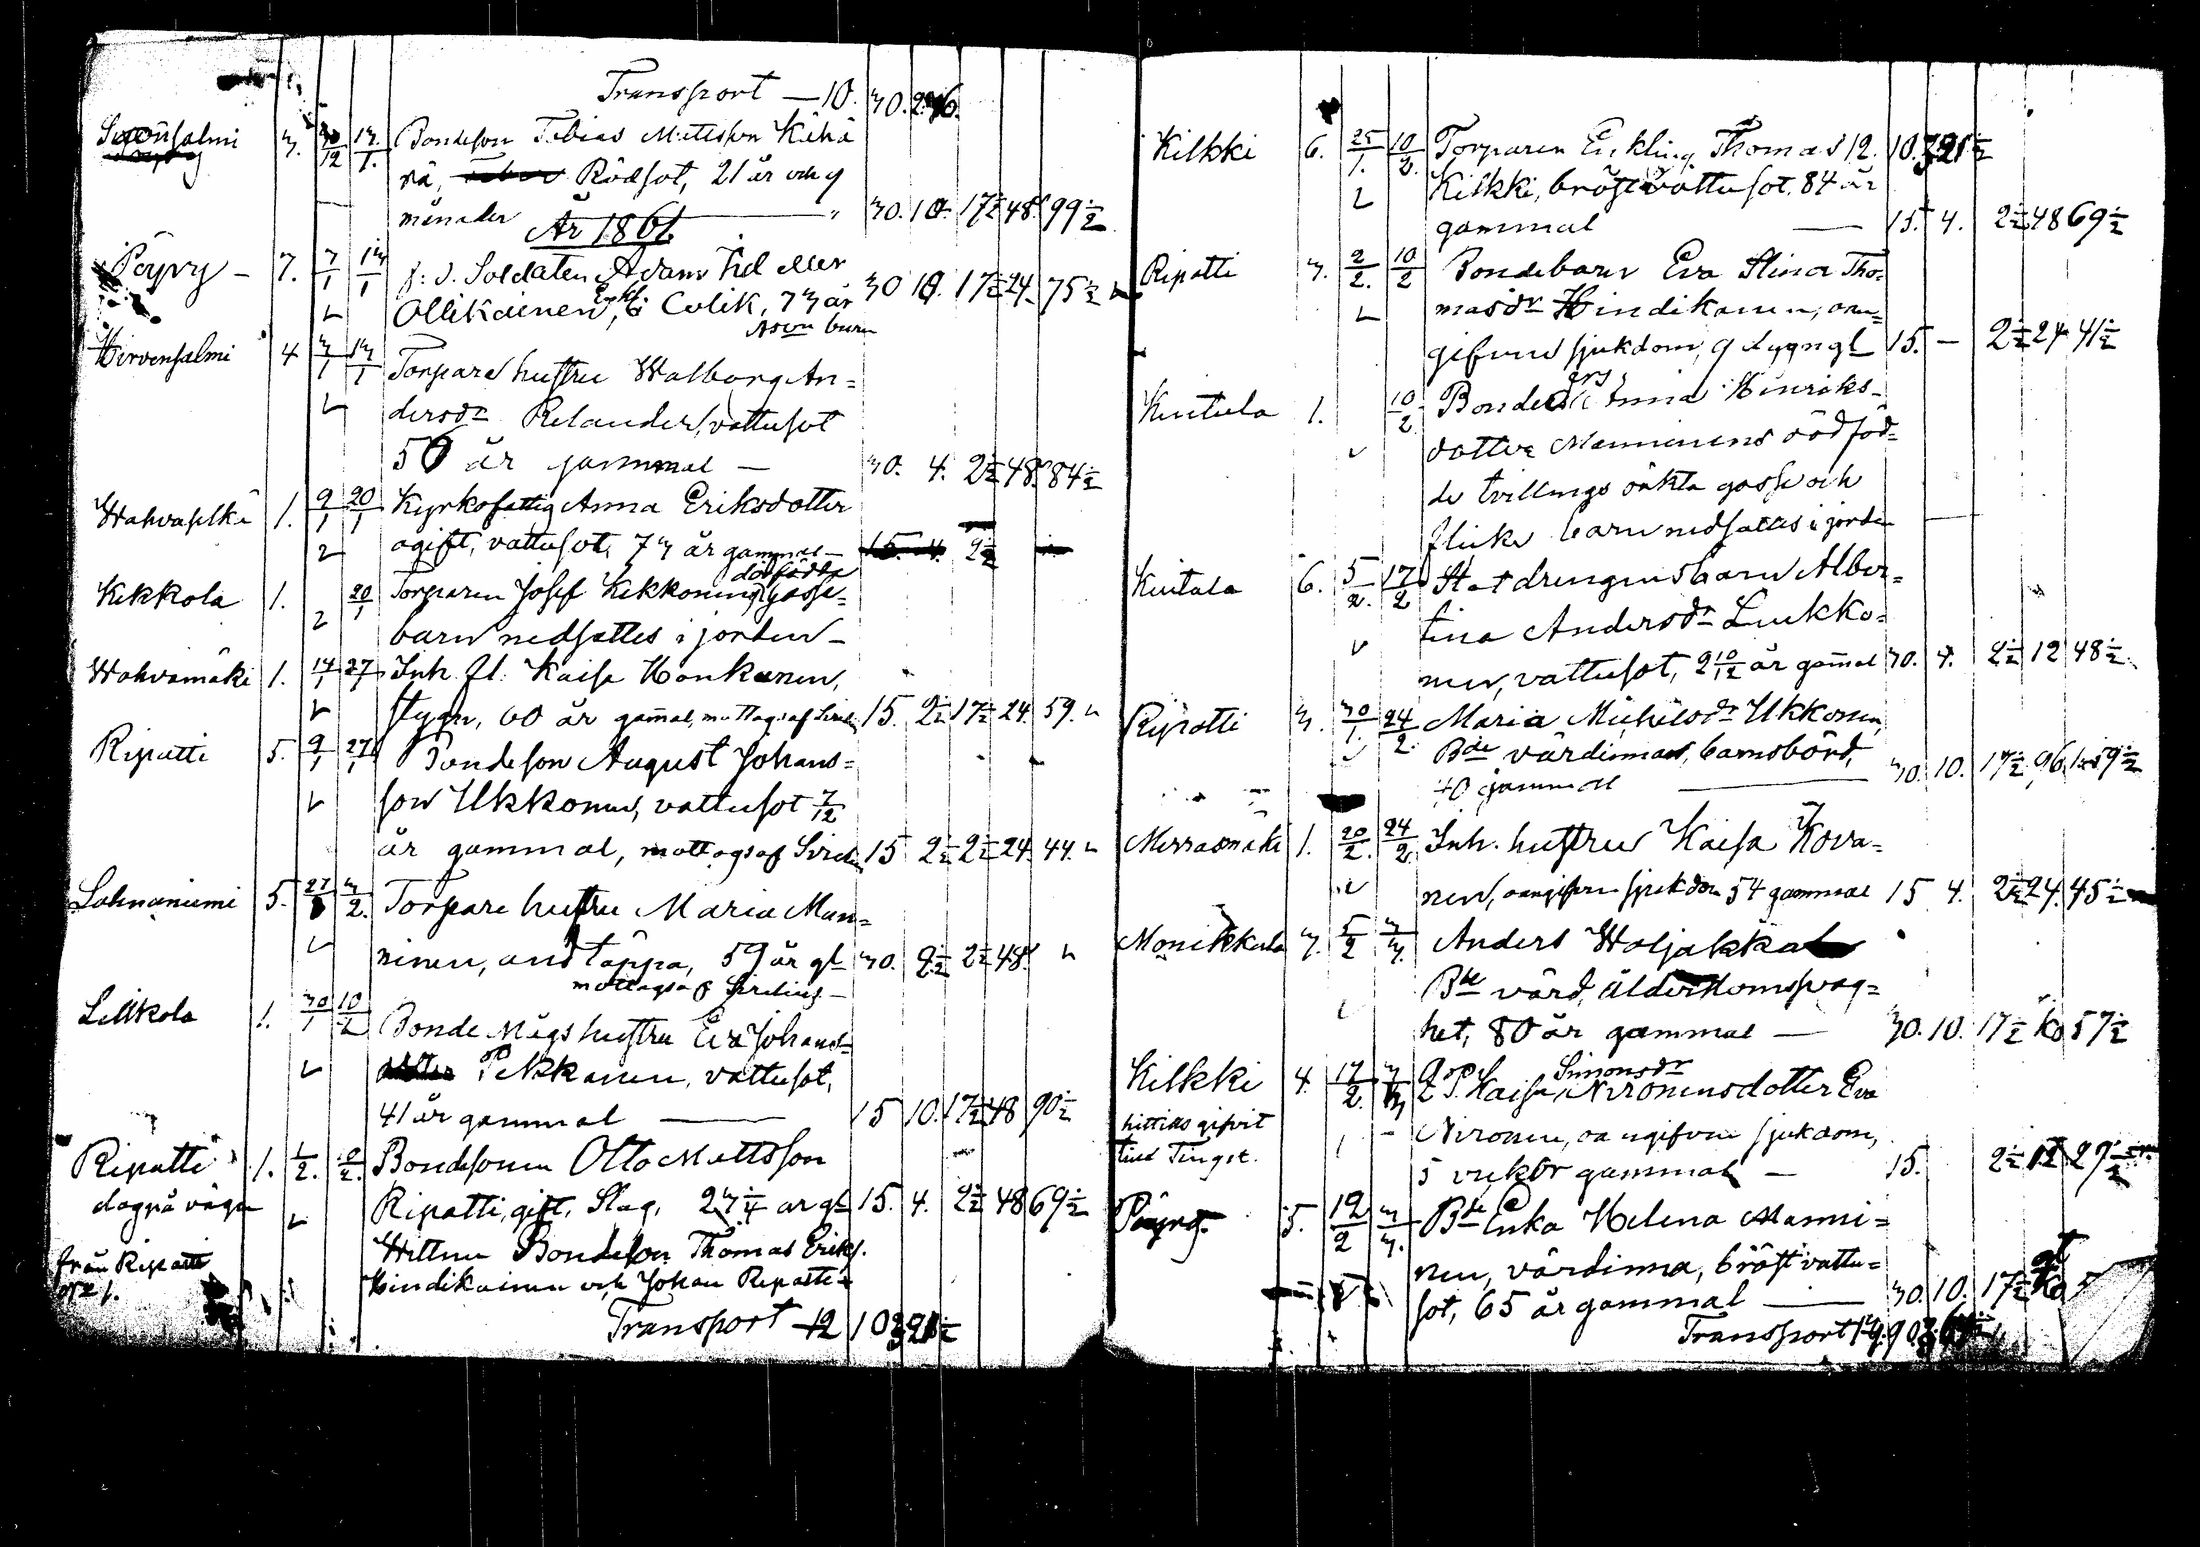 Transport — 10. 30.
Savonsalmi 3. 30/12 13/1. Bondeson Tobias Mattsson Kähä
rä, Rödsot, 21 år och 9
månader 30. 10. 17½ 48. 99½
År 1861.
Pöyry — 7. 7/1 13/1 f: d. Soldaten Adam Fid eller
Ollikainen, Enkl. Colik, 73 år 30 10. 17½ 24. 75½
Hirvensalmi 4 3/1 13/1 Torpare hustru Walborg An=
dersdr Relander, vattusot
56 år gammal — 30. 4. 2½ 48. 84½
Wahvaselkä 1. 9/1 20/1 Kyrkofattig Anna Eriksdotter
ogift, vattusot, 73 år gammal — 15. 4. 2½
Kekkola 1. 20/1 Torparen Josef Kekkonens dödfödda gosse=
barn nedsattes i jorden —
Wahvamäki 1. 14/1 27/1 Inh. fl. Kaisa Honkanen,
stygn, 60 år gamal, mottogs af Sirel. 15. 2½ 17½ 24. 59.
Ripatti 5. 9/1 27/1 Bondeson August Johans=
son Ukkonen, vattusot 7/12
år gammal, mottogs af Sirelius 15 2½ 2½ 24. 44.
Lahnaniemi 5. 27/1 3/2. Torpare hustru Maria Man=
ninen, andtäppa, 59 år gl 30. 2½ 2½ 48.
mottogs af Sirelius —
Lellkola 1. 30/1 10/2 Bonde Mågs hustru Eva Johans=
Pekkanen, vattusot,
41 år gammal — 15 10. 17½ 48 90½
Ripatti 1. 1/2. Bondesonen Otto Mattsson
dog på vägen Ripatti, gift, Slag, 23¼ år gl 15. 4. 2½ 48 69½
från Ripatti Wittnen Bondeson Thomas Eriks.
№ 1. Hindikainen och Johan Ripatti
Transport 12 10
Kilkki 6. 25/1. 10/2. Torparen Enkling Thomas 12. 10.
Kilkki, bröst vattusot, 84 år
gammal — 15. 4. 2½ 48 69½
Ripatti 3. 2/2. 10/2 Bondebarn Eva Stina Tho=
masdr Hindikainen, oan=
gifven sjukdom, 9 dygn gl 15. — 2½ 24 41½
Kuitula 1. 10/2 Bonde Enna Hinriks=
dotter Manninens dödföd=
de tvillings oäkta gosse och
flicke barn nedsattes i jorden —
Kuitula 6. 5/2. 17/2 Statdrengens barn Alber=
tina Andersdr Luukko=
nen, vattusot, 2 10/12 år gamal 30. 4. 2½ 12 48½
Ripatti 3. 30/1. 24/2 Maria Michelsdr Ukkonen,
Bde värdinna, barnsbörd,
40 gammal — 30. 10. 17½
Mörrämäki 1. 20/2. 24/2 Inh. hustru Kaisa Kova=
nen, oangifven sjukdom 54 gammal 15 4. 2½ 24. 45½
Monikkala 3. 5/2 3/3. Anders Waljakka
Bde värd, ålderdomssvag=
het, 80 år gammal — 30. 10. 17½ ko 57½
Kilkki 4. 17/2. 3/3 Kaisa Simonsdr Nironens dotter Eva
hittills gifvit Nironen, oangifven sjukdom,
till Tingst. 5 veckor gammal — 15. 2½ 12 29½
Pöyry 5. 12/2 3/3. Bde Enka Helena Manni=
nen, värdinna, bröst vattu=
sot, 65 år gammal — 30. 10. 17½ ko
Transport